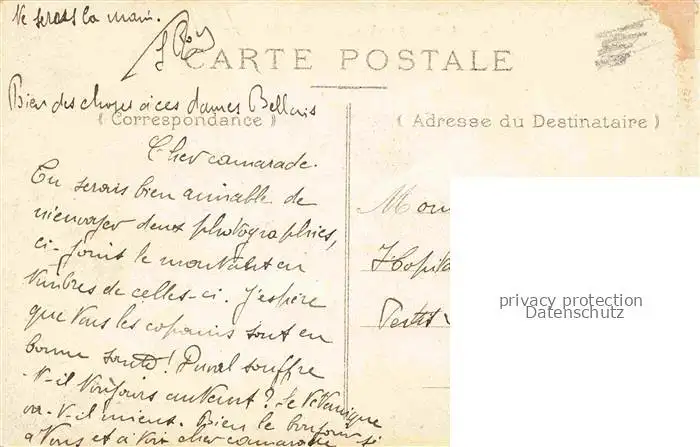 Te serres la main.
CARTE POSTALE
Bien des choses à ces dames Bellais
( Correspondance )
( Adresse du Destinataire )
Cher camarade.
Tu serais bien aimable de
m'envoyer deux photographies,
ci-joint le montant en
timbres de celles-ci. J'espère
que tous les copains sont en
bonne santé! Duval souffre
-t-il toujours autant?
va-t-il mieux. Bien le bonjour
à tous et à toi cher camarade
Mon
Hopita
Petit
privacy protection
Datenschutz